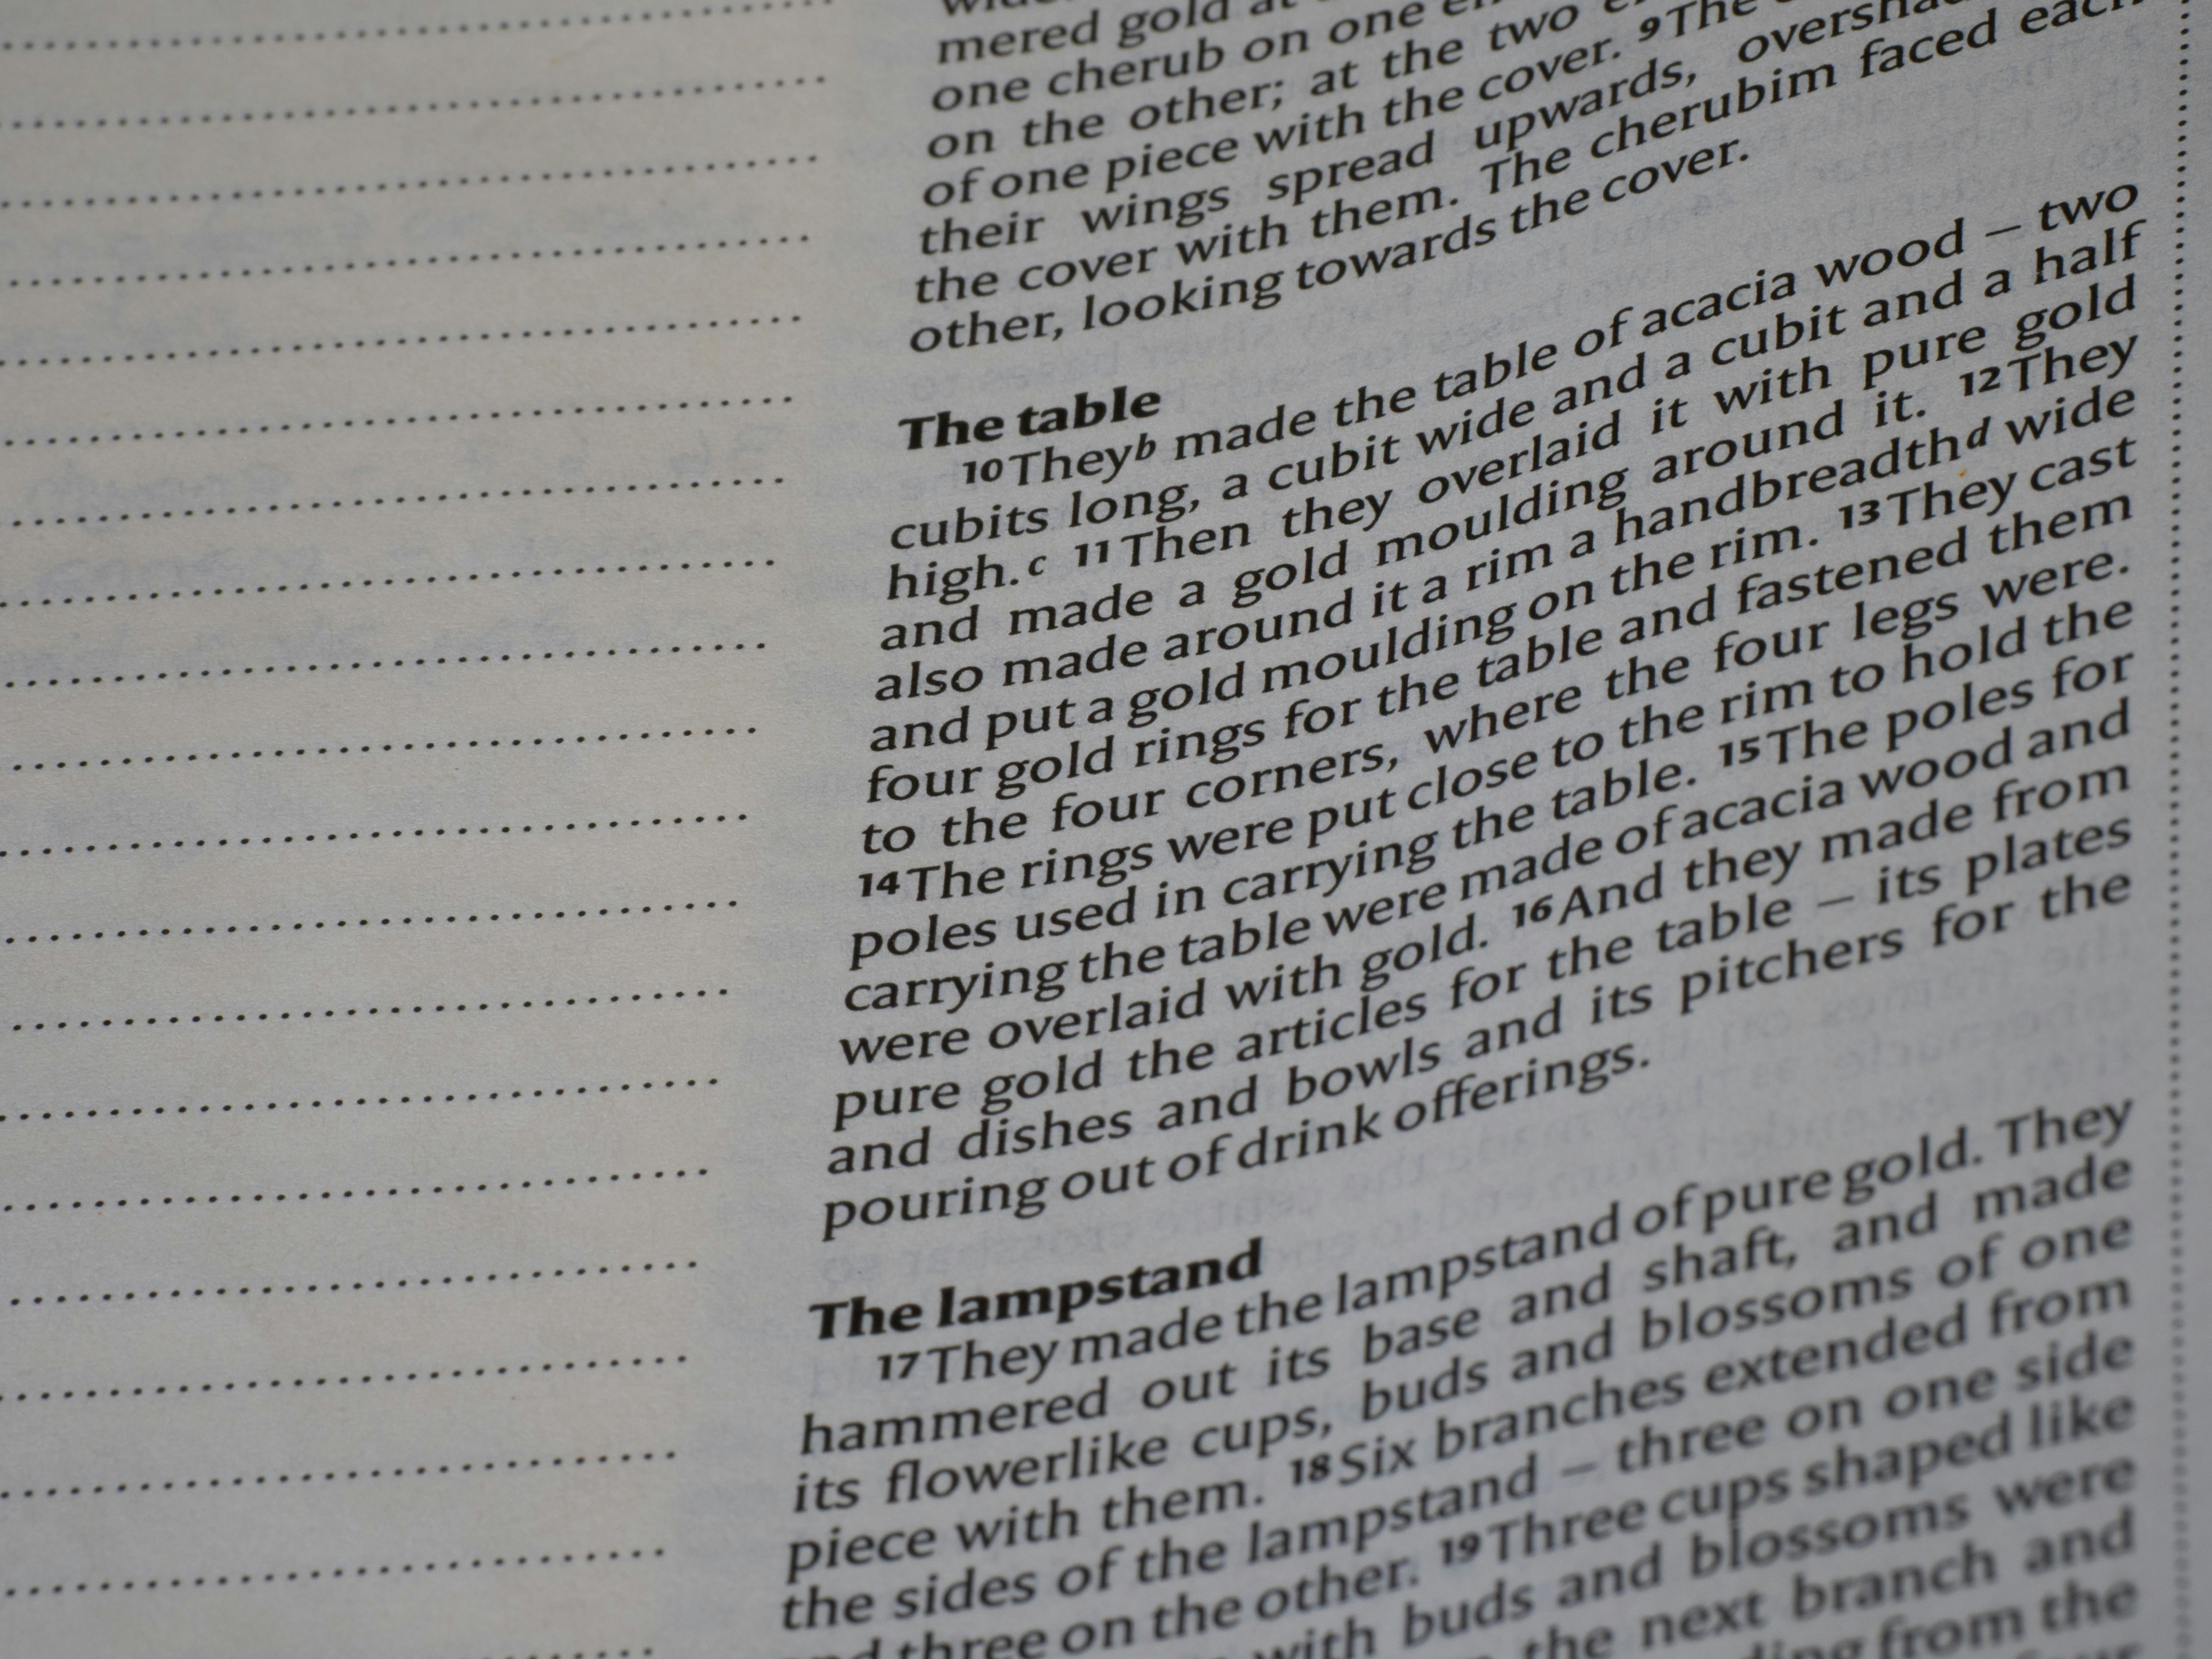 mered gold at
one cherub on one
on the other; at the two
of one piece with the cover. 9The
their wings spread upwards,
the cover with them. The cherubim faced each
other, looking towards the cover.
The table
10Theyb made the table of acacia wood – two
cubits long, a cubit wide and a cubit and a half
high.c 11Then they overlaid it with pure gold
and made a gold moulding around it. 12They
also made around it a rim a handbreadthd wide
and put a gold moulding on the rim. 13They cast
four gold rings for the table and fastened them
to the four corners, where the four legs were.
14The rings were put close to the rim to hold the
poles used in carrying the table. 15The poles for
carrying the table were made of acacia wood and
were overlaid with gold. 16And they made from
pure gold the articles for the table – its plates
and dishes and bowls and its pitchers for the
pouring out of drink offerings.
The lampstand
17They made the lampstand of pure gold. They
hammered out its base and shaft, and made
its flowerlike cups, buds and blossoms of one
piece with them. 18Six branches extended from
the sides of the lampstand – three on one side
three on the other. 19Three cups shaped like
with buds and blossoms were
the next branch and
from the